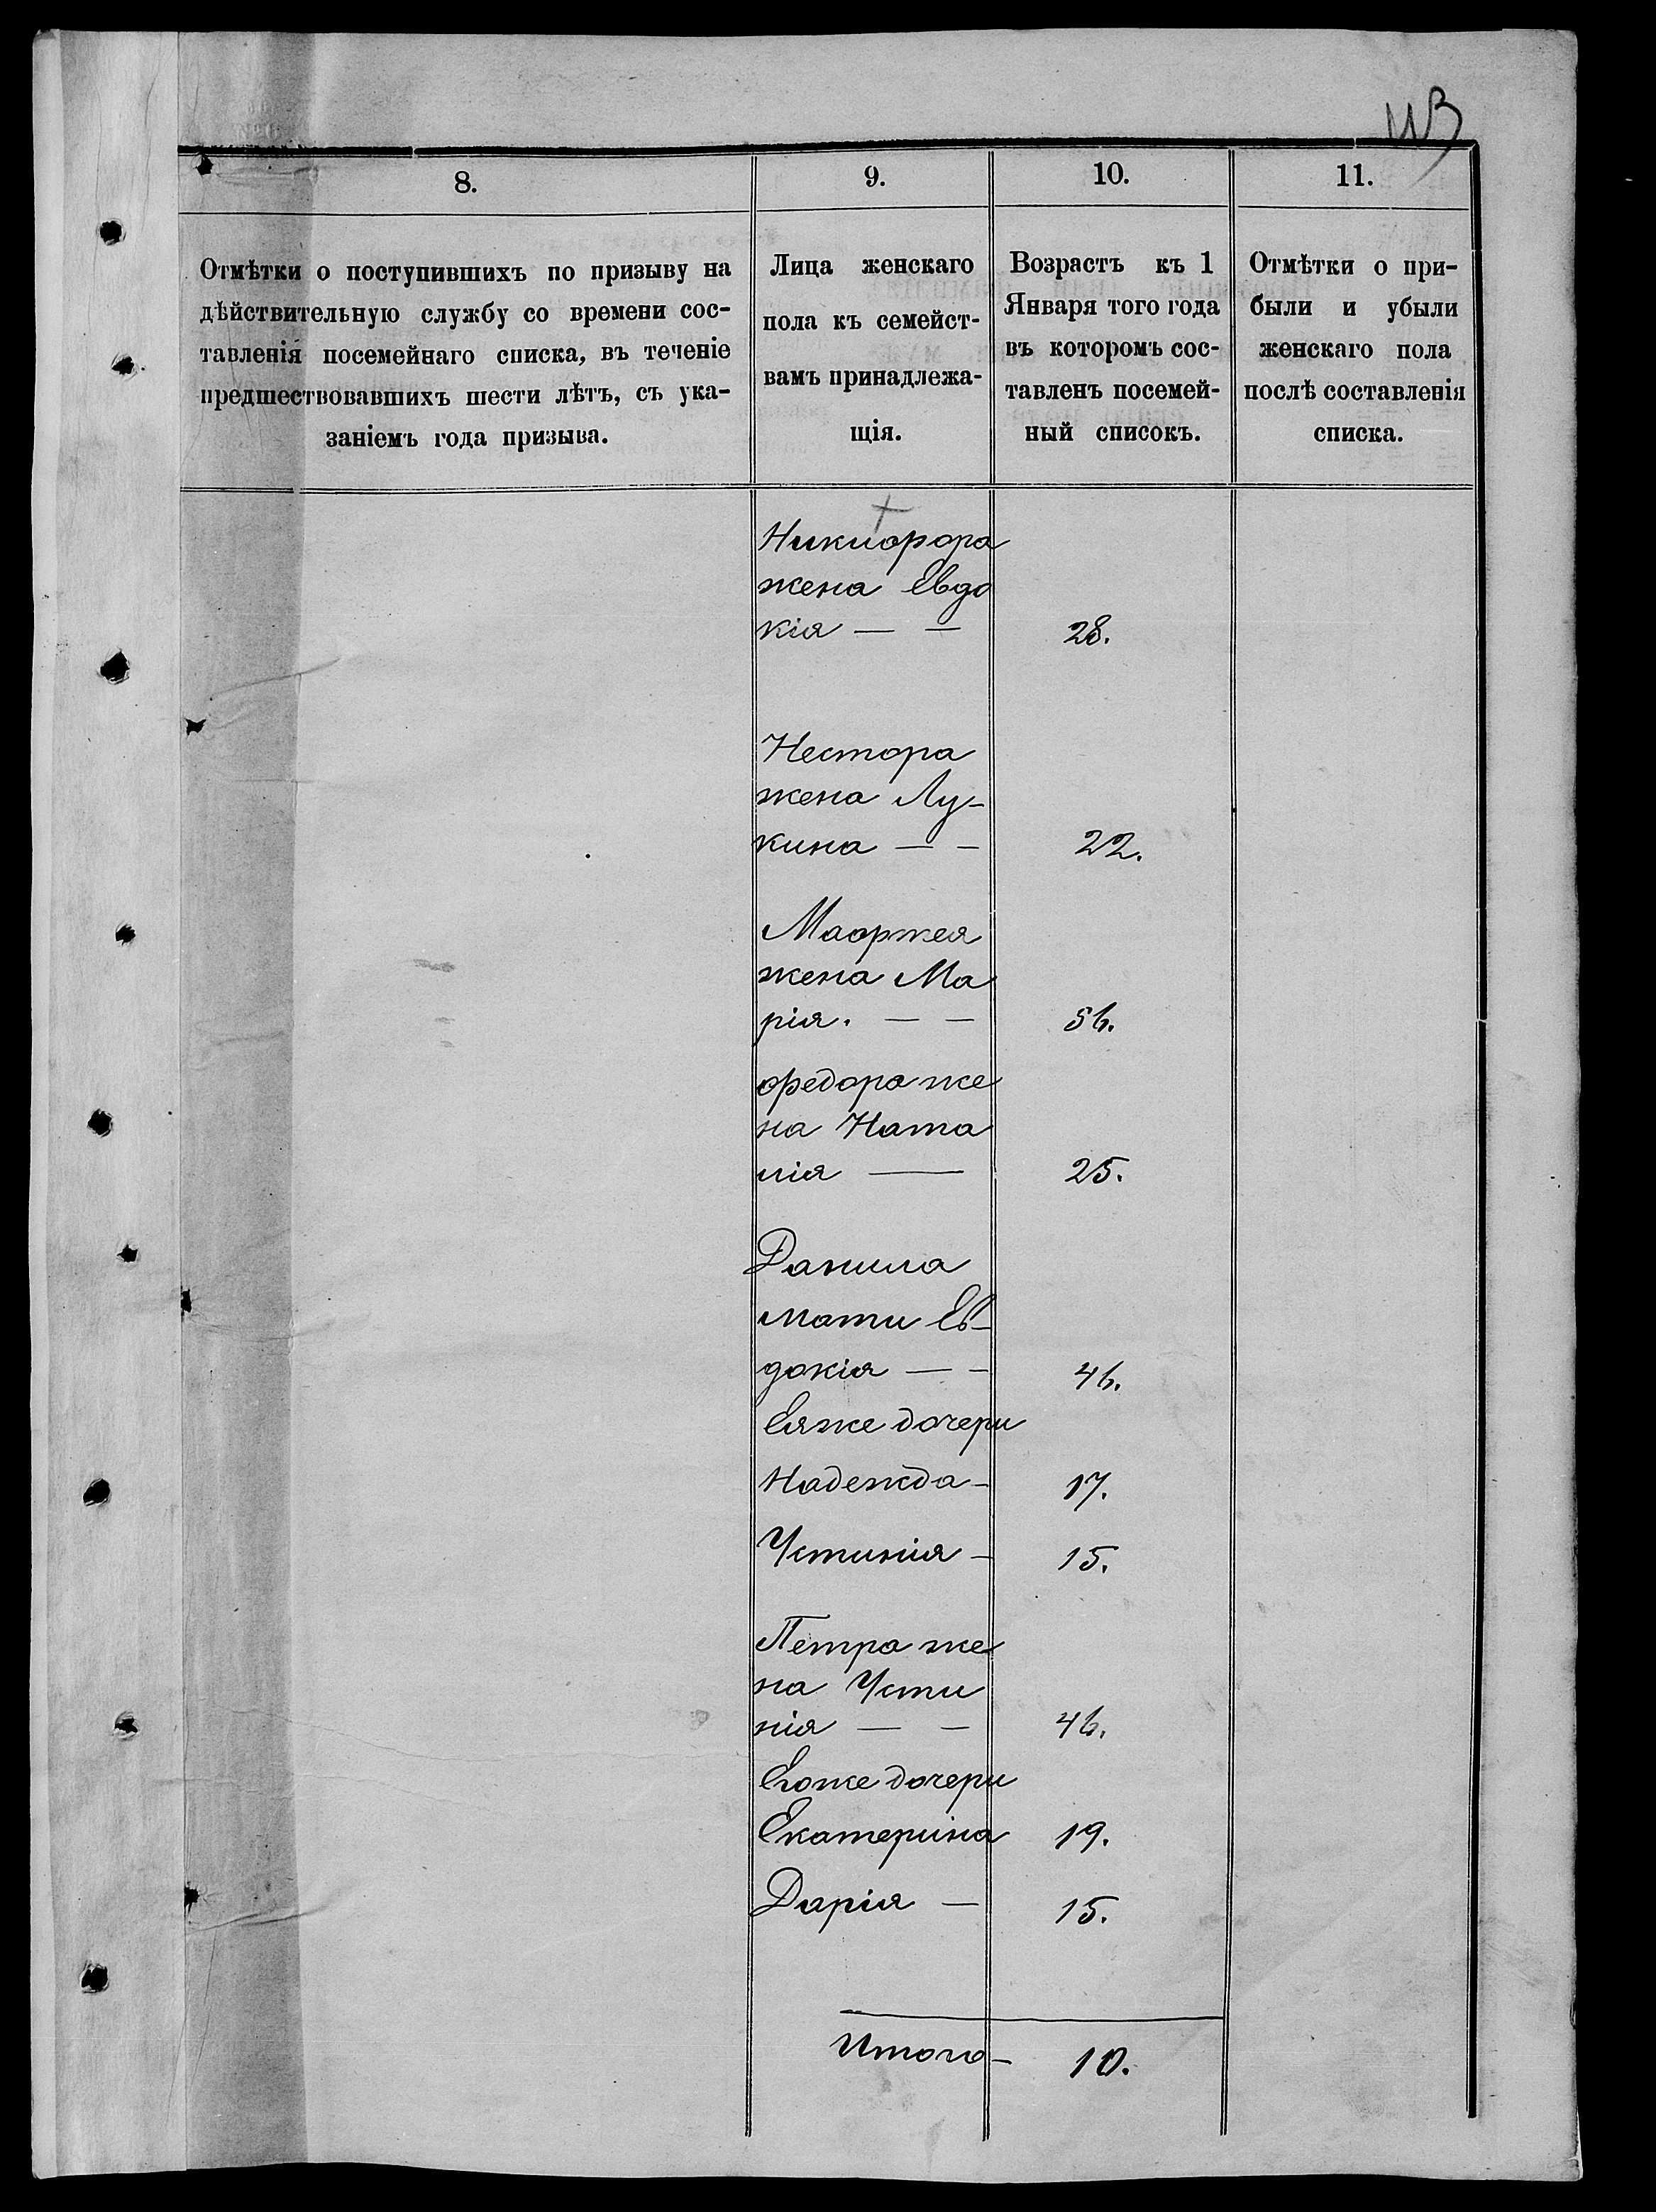 8.
9.
10.
11.
Отмѣтки о поступившихъ по призыву на
дѣйствительную службу со времени сос-
тавленія посемейнаго списка, въ теченіе
предшествовавшихъ шести лѣтъ, съ ука-
заніемъ года призыва.
Лица женскаго
пола къ семейст-
вамъ принадлежа-
щія.
Возрастъ къ 1
Января того года
въ которомъ сос-
тавленъ посемей-
ный списокъ.
Отмѣтки о при-
были и убыли
женскаго пола
послѣ составленія
списка.
Никифора
жена Евдо
кія — — 28.
Нестора
жена Лу-
кина — — 22.
жена Ма
рія. — — 56.
Федора же
на Ната
лія — 25.
Данила
мати Ев-
докія — — 46.
Еяже дочери
Надежда - 17.
Устинія - 15.
Петра же
на Усти
нія — — 46.
Егоже дочери
Екатерина 19.
Дарія — 15.
Итого - 10.